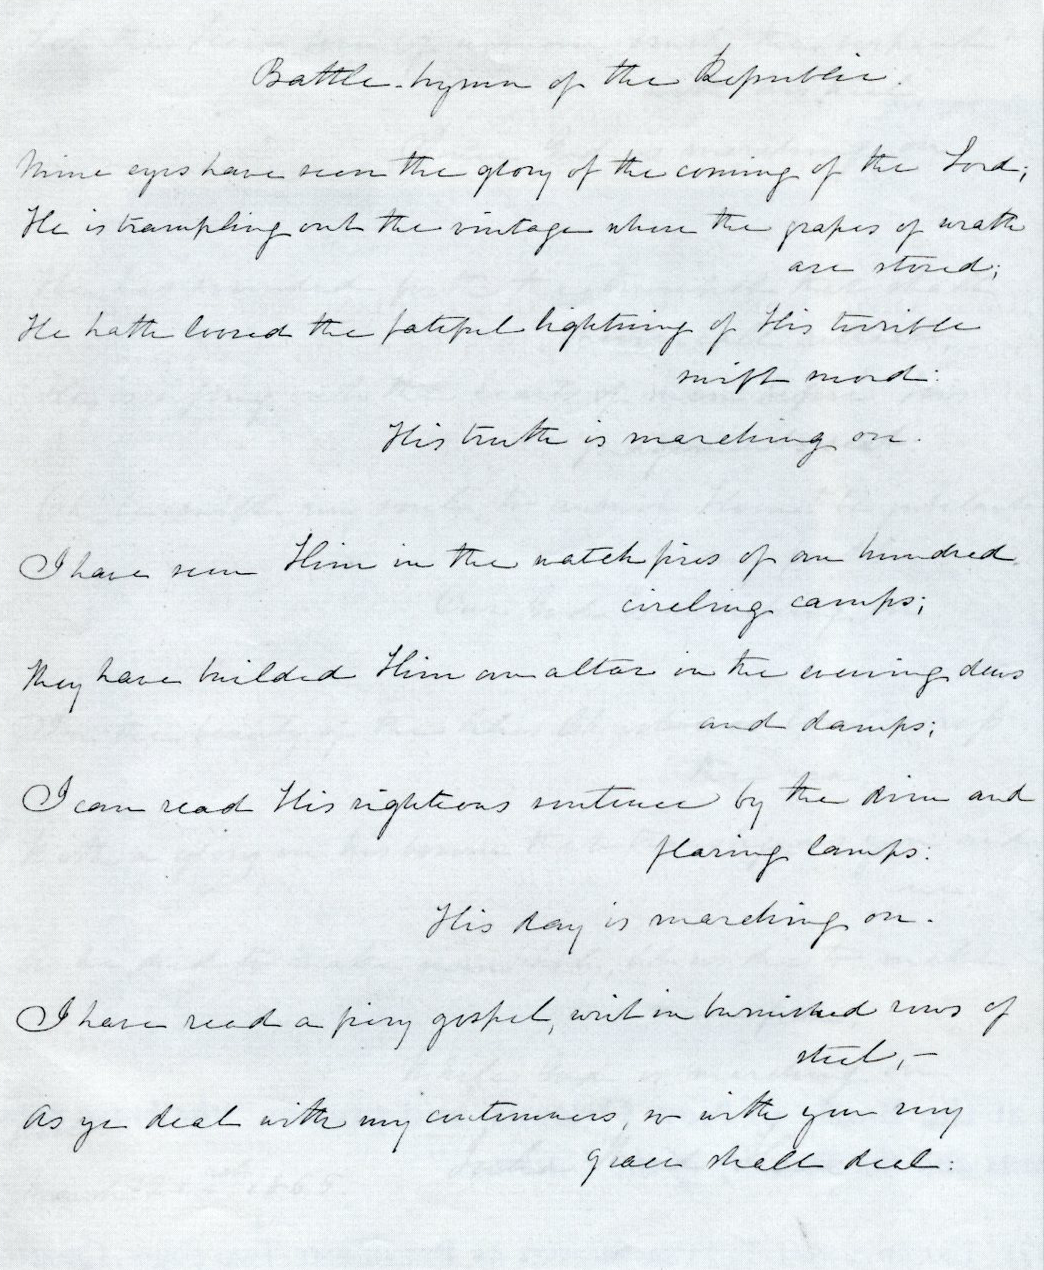 Battle-hymn of the Republic.
Mine eyes have seen the glory of the coming of the Lord;
He is trampling out the vintage where the grapes of wrath
are stored;
He hath loosed the fateful lightning of His terrible
swift sword:
His truth is marching on.
I have seen Him in the watchfires of an hundred
circling camps;
They have builded Him an altar in the evening dews
and damps;
I can read His righteous sentence by the dim and
flaring lamps:
His day is marching on.
I have read a fiery gospel, writ in burnished rows of
steel,—
As ye deal with my contemners, so with you my
grace shall deal: